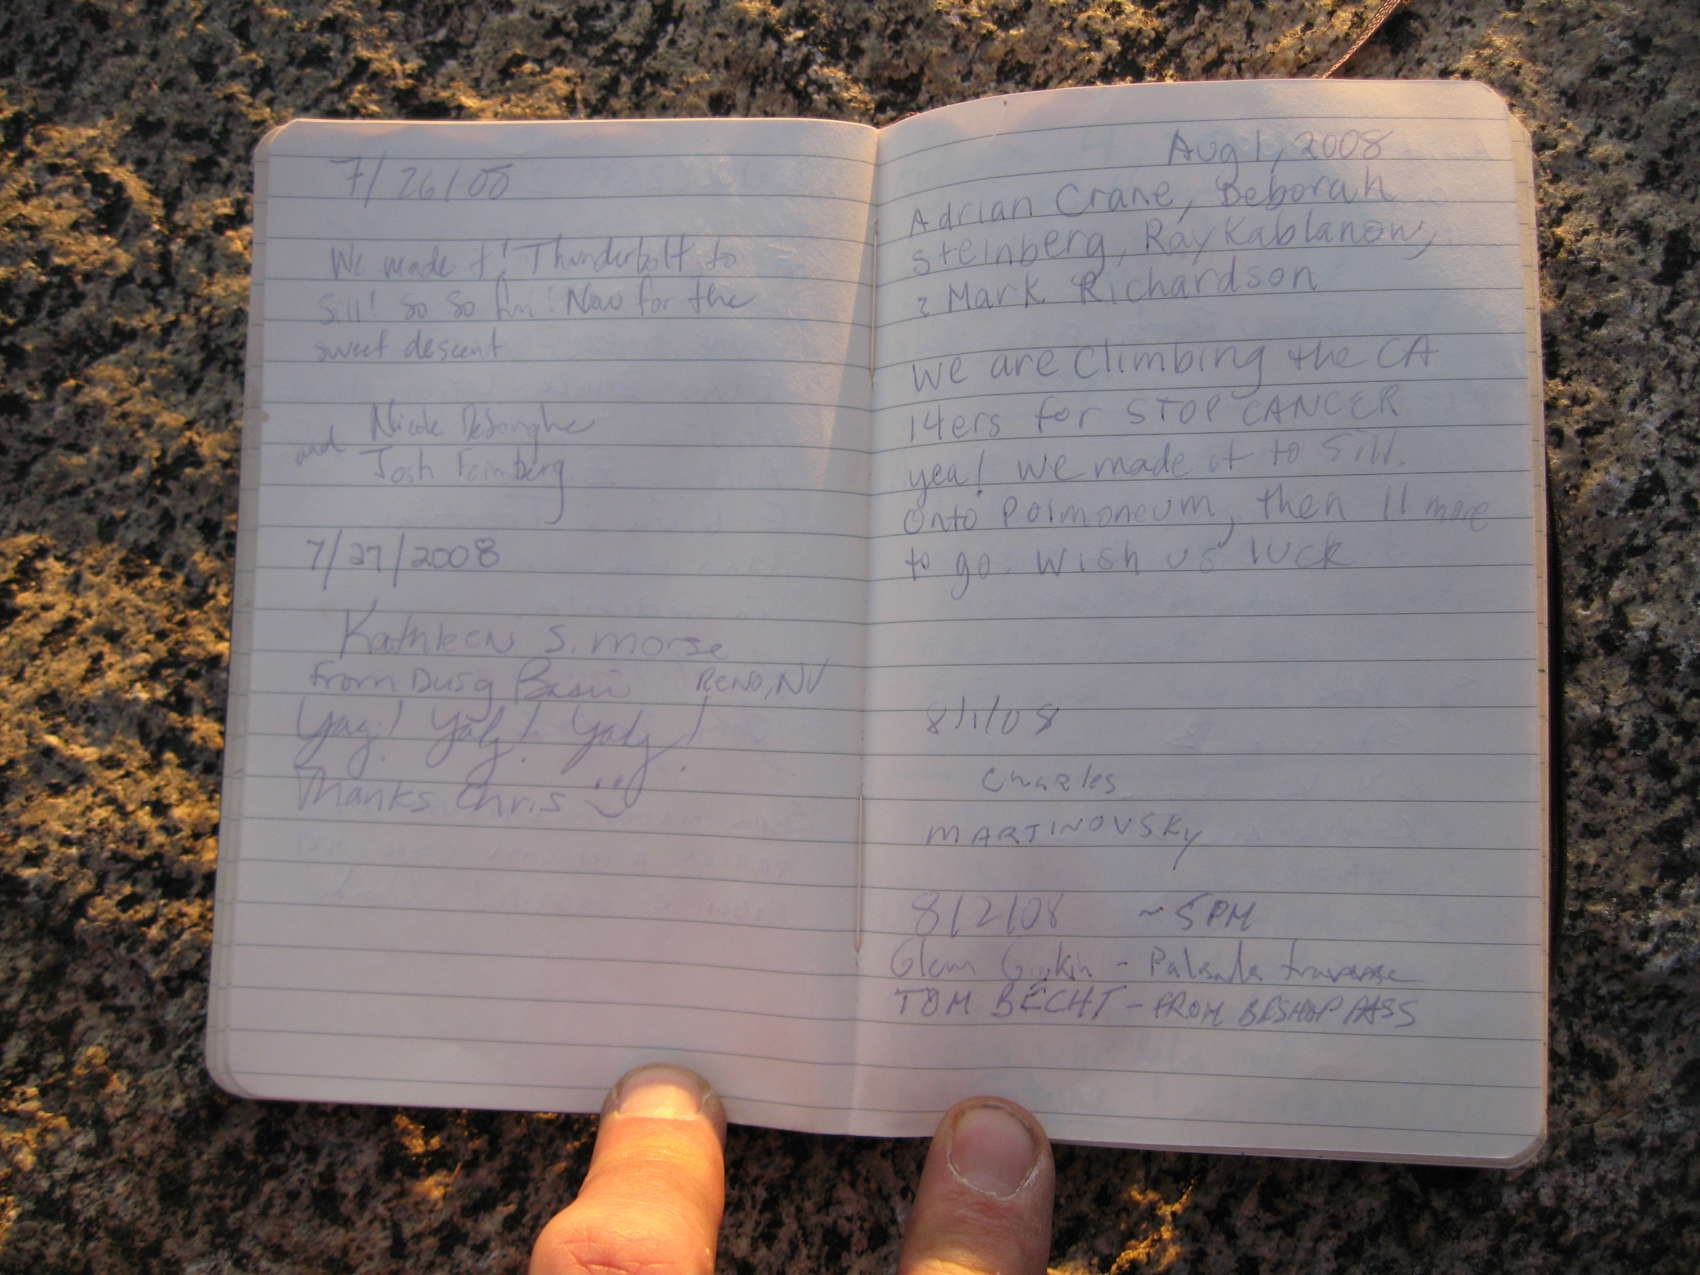 7/26/08
We made it! Thunderbolt to
Sill! So So fun! Now for the
sweet descent
Nicole DeJonghe
and Josh Feinberg
7/27/2008
Kathleen S. Morse
from Dusy Basin Reno, NV
Yay! Yay! Yay!
Thanks Chris
Aug 1, 2008
Adrian Crane, Deborah
Steinberg, Ray Kablanow,
& Mark Richardson
We are Climbing the CA
14ers for STOP CANCER
yea! We made it to Sill.
Onto Polmoneum, then 11 more
to go. Wish us luck
8/1/08
Charles
MARTINOVSKY
8/2/08 ~5PM
Glenn - Palisade traverse
TOM BECHT - FROM BISHOP PASS